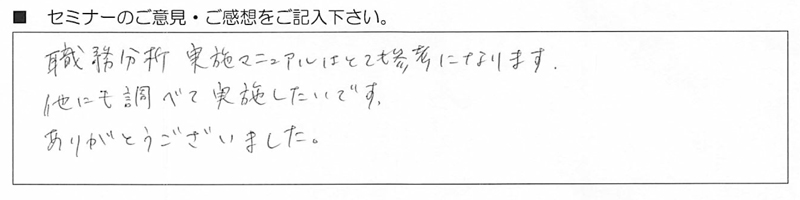 ■ セミナーのご意見・ご感想をご記入下さい。
職務分析 実施マニュアルはとても参考になります.
他にも調べて実施したいです.
ありがとうございました。